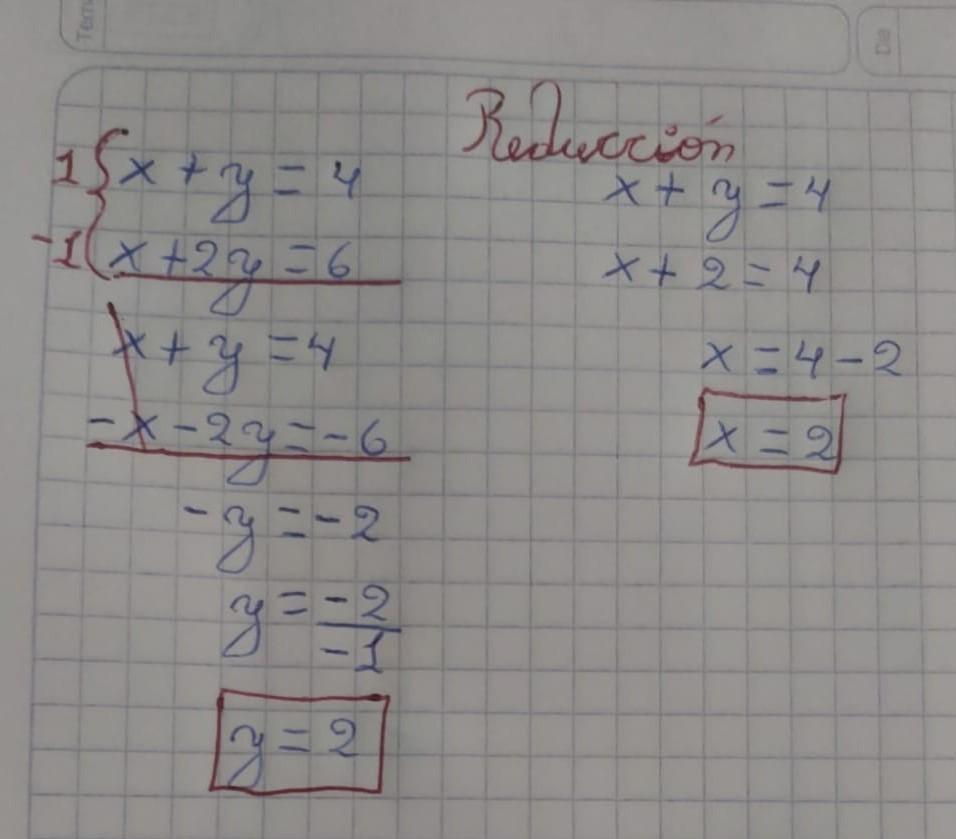 Tem
Da
Reducción
1 { x + y = 4
-1 { x + 2y = 6
x + y = 4
-x - 2y = -6
-y = -2
y = -2/-1
y = 2
x + y = 4
x + 2 = 4
x = 4 - 2
x = 2